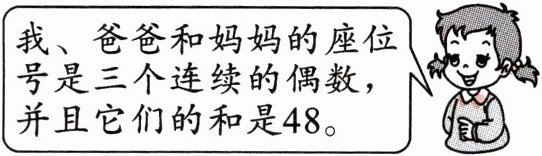 我、爸爸和妈妈的座位
号是三个连续的偶数，
并且它们的和是48。